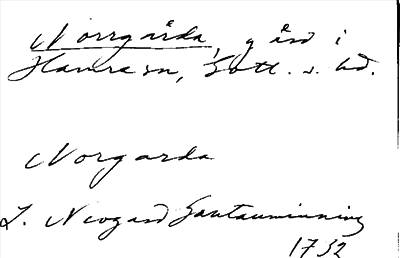 Norrgårda, gård i
Hamra sn, Gotl. s. hd.
Norgarda
L. Neogard Gautauminning
1732